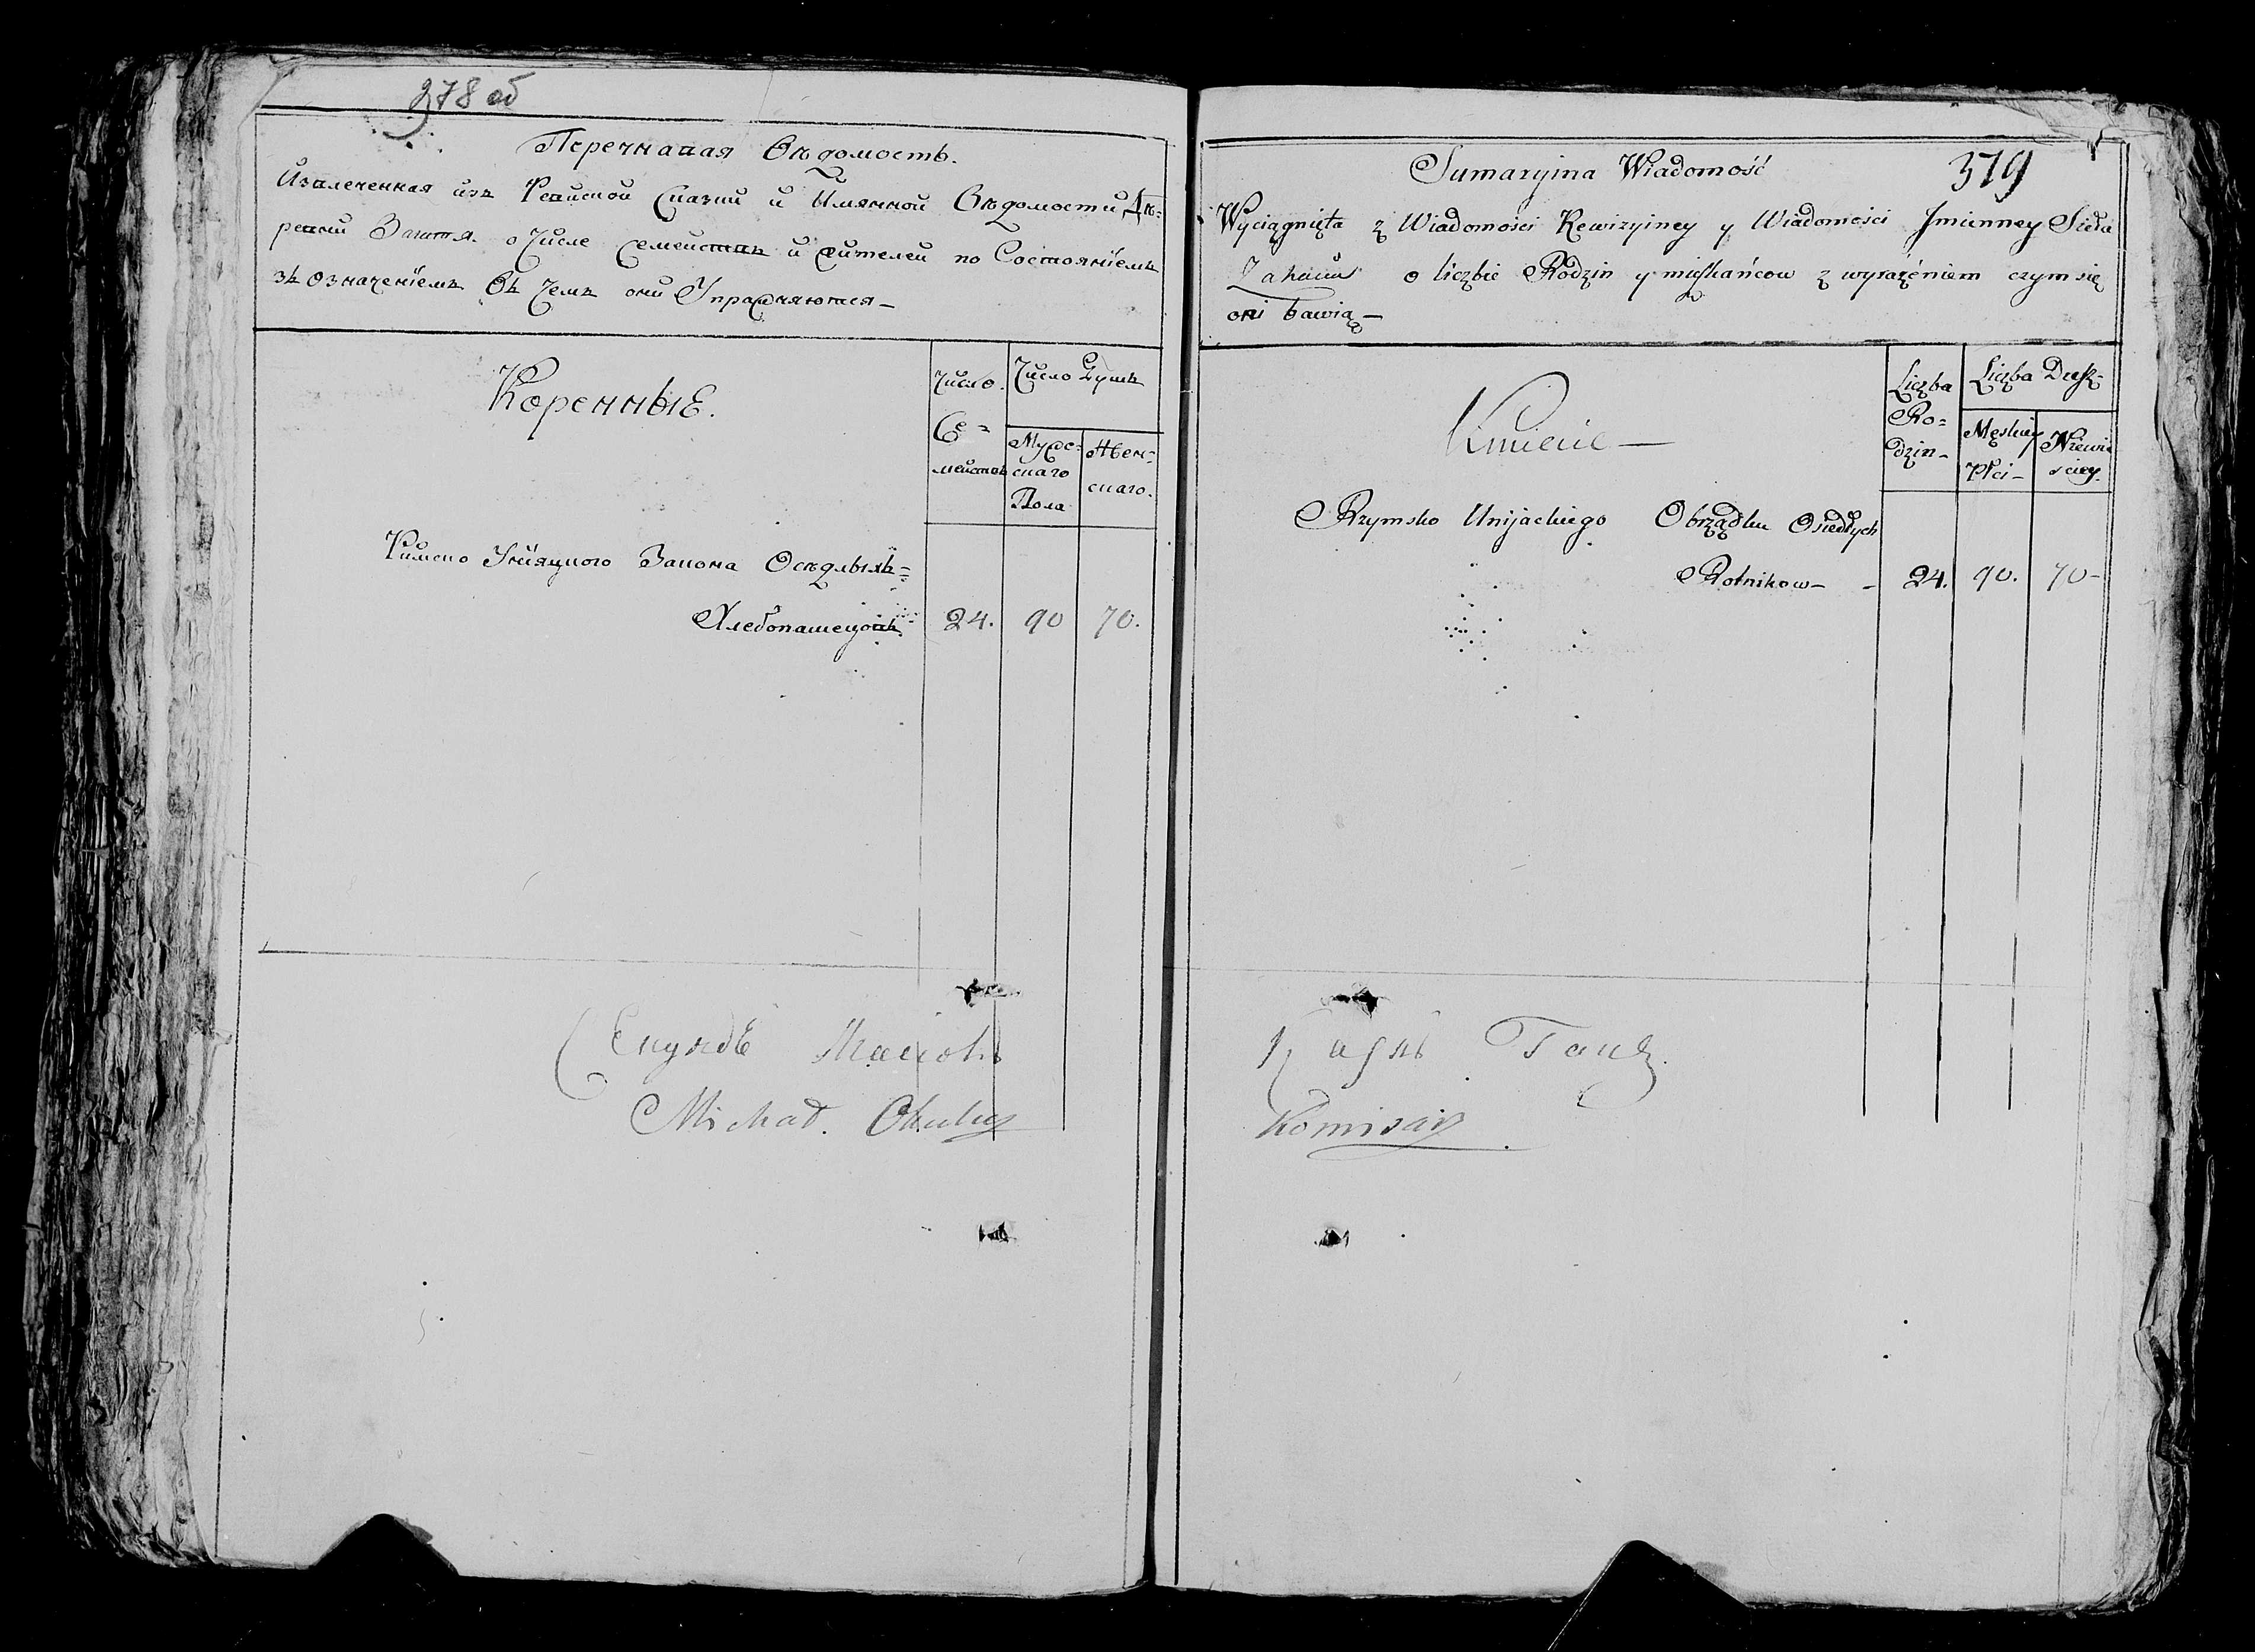 378 об
Перечневая Вѣдомость.
Извлеченная изъ Ревиской Сказки и Имянной Вѣдомости Де=
ревни о Числе Семействъ и жителей по Состояніемъ
зъ Означеніемъ Въ Чемъ они Упражняются—
Коренные.
Число
Се=
мействъ
Число Душъ
Мужс=
скаго
Пола
Жен=
скаго.
Римско Уніяцкого Закона Оседлыхъ=
Хлебопашецовъ 24. 90 70.
Michał
379
Sumaryina Wiadomość
Wyciągnięta z Wiadomości Rewizyiney y Wiadomości Jmienney Sioła
o liczbie Rodzin y mieszkańcow z wyrażeniem czym się
oni bawią—
Kmiecie—
Liczba
Ro=
dzin—
Liczba Dusz—
Męskiey
Płci—
Niewie
sciey.
Rzymsko Unijackiego Obrządku Osiedłych
Rolnikow— - 24. 90. 70-
Komisarz